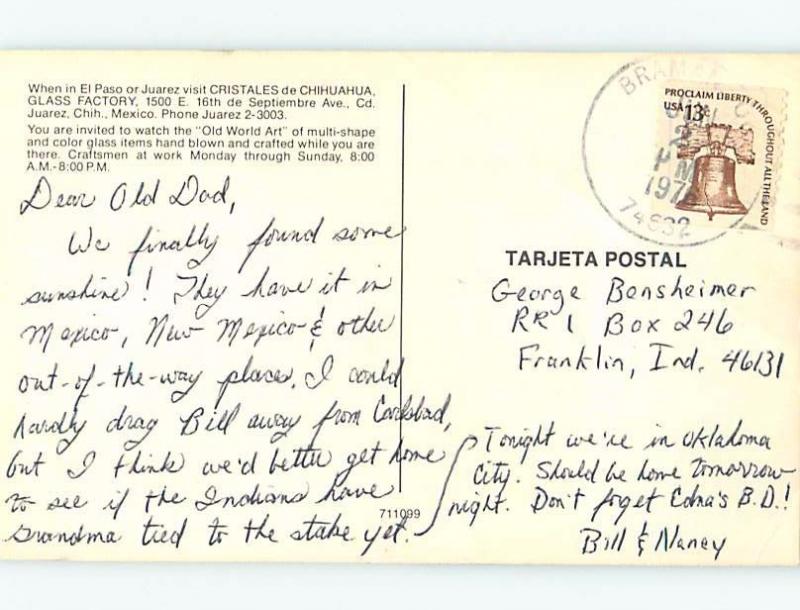 When in El Paso or Juarez visit CRISTALES de CHIHUAHUA,
GLASS FACTORY, 1500 E. 16th de Septiembre Ave., Cd.
Juarez, Chih., Mexico. Phone Juarez 2-3003.
You are invited to watch the "Old World Art" of multi-shape
and color glass items hand blown and crafted while you are
there. Craftsmen at work Monday through Sunday, 8:00
A.M.-8:00 P.M.
Dear Old Dad,
We finally found some
sunshine! They have it in
Mexico, New Mexico & other
out-of-the-way places. I could
hardly drag Bill away from Carlsbad,
but I think we'd better get home
to see if the Indians have
Grandma tied to the stake yet.
711099
PROCLAIM LIBERTY THROUGHOUT ALL THE LAND
USA 13c
2
PM
74632
TARJETA POSTAL
George Bensheimer
RR 1 Box 246
Franklin, Ind. 46131
Tonight we're in Oklahoma
City. Should be home tomorrow
night. Don't forget Edna's B.D.!
Bill & Nancy